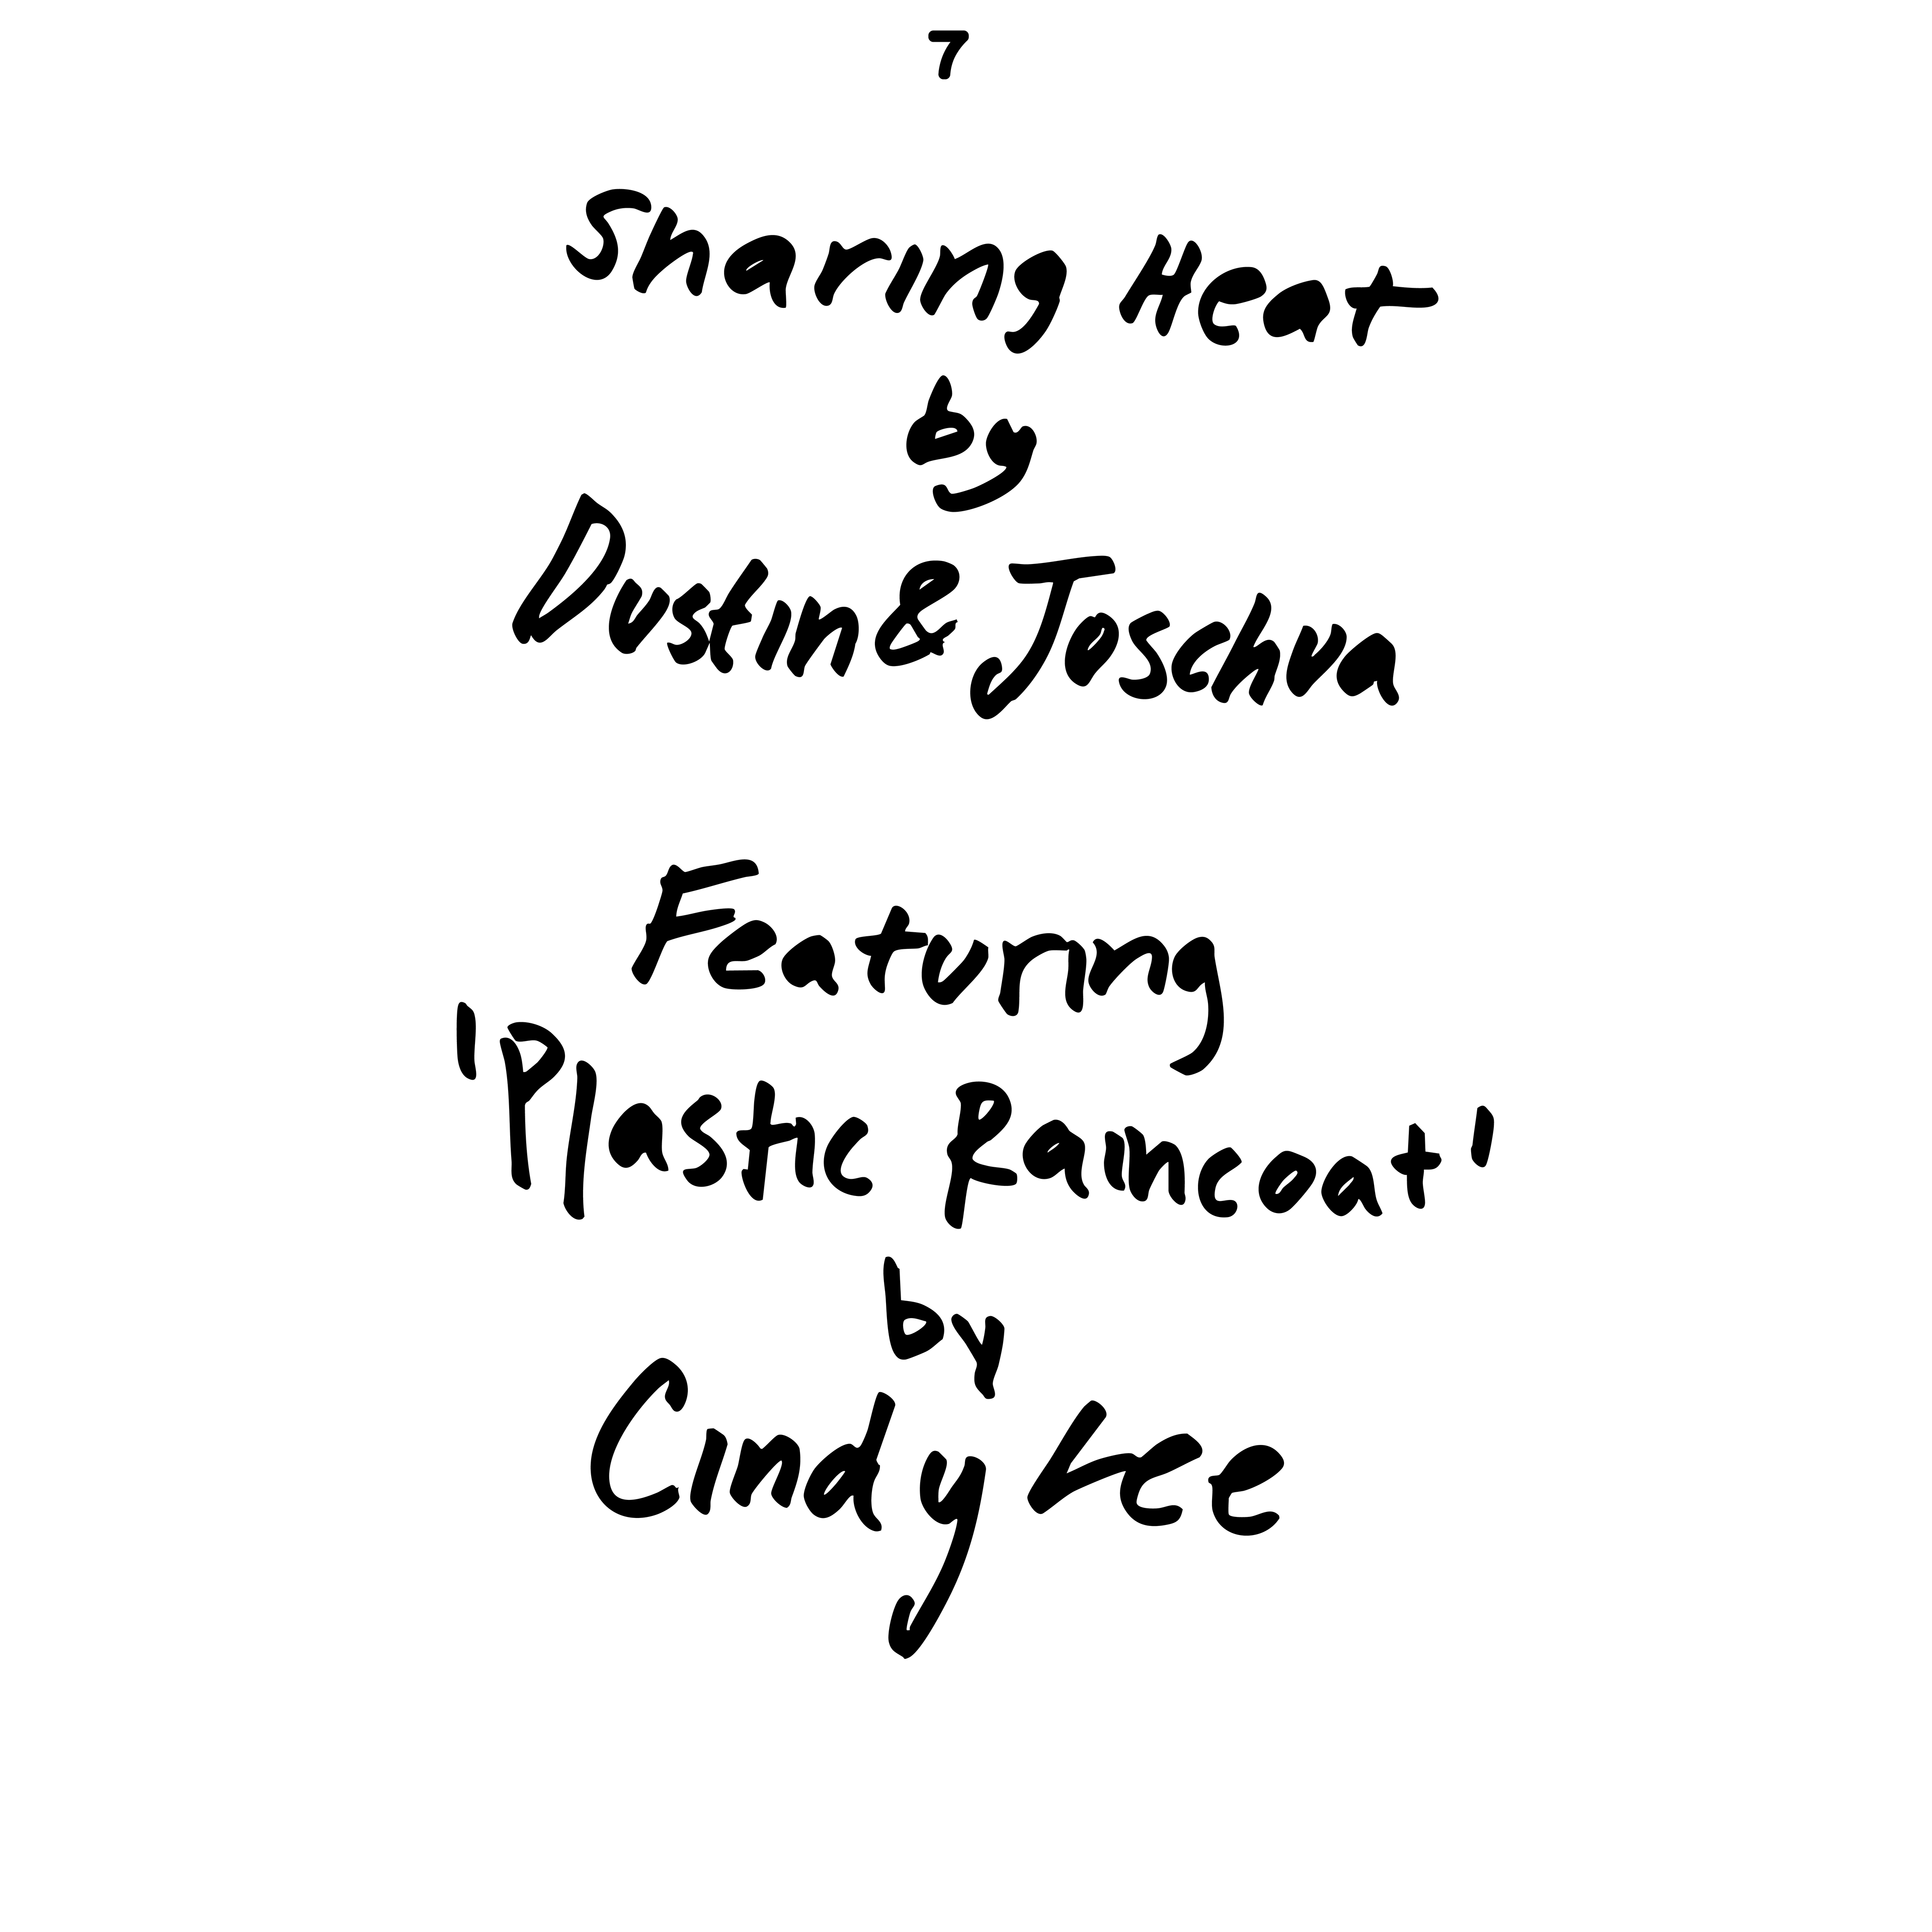 7
Sharing Heat
by
Dustin & Jascha
Featuring
'Plastic Raincoat'
by
Cindy Lee